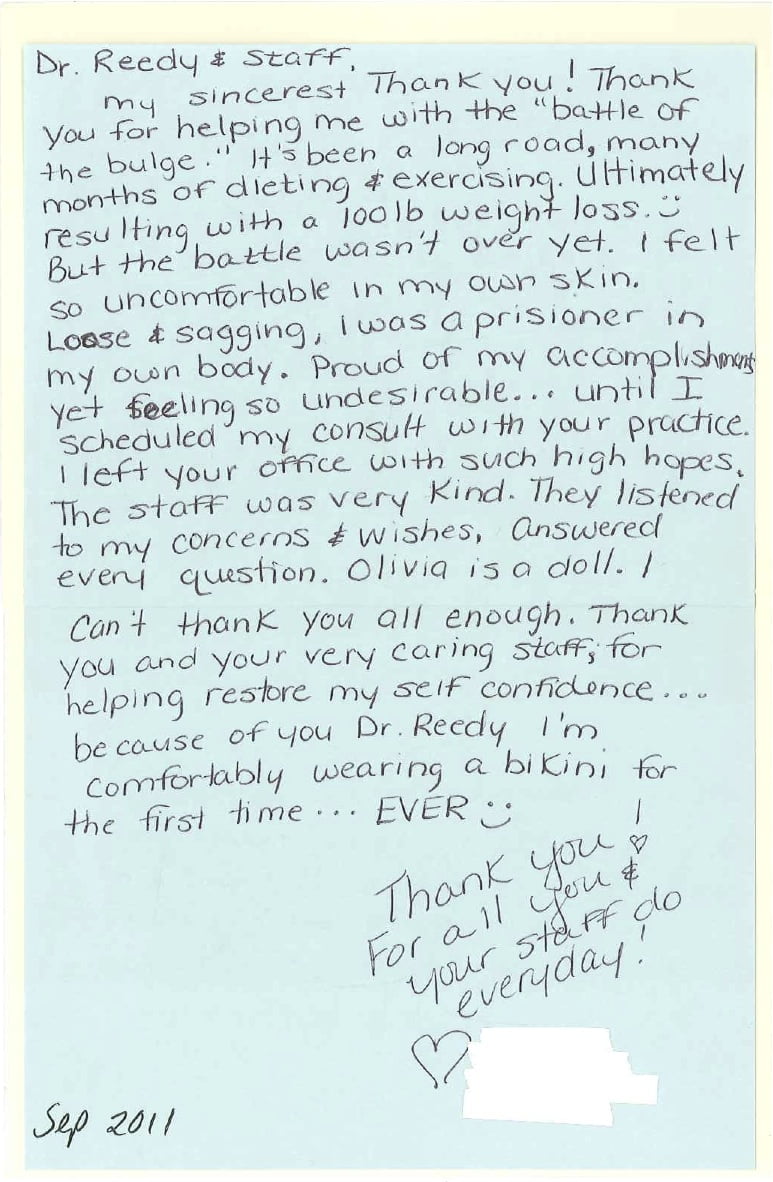 Dr. Reedy & Staff,
my sincerest Thank you! Thank
you for helping me with the "battle of
the bulge." It's been a long road, many
months of dieting & exercising. Ultimately
resulting with a 100lb weight loss. :)
But the battle wasn't over yet. I felt
so uncomfortable in my own skin.
Loose & sagging, I was a prisioner in
my own body. Proud of my accomplishments
yet feeling so undesirable... until I
scheduled my consult with your practice.
I left your office with such high hopes.
The staff was very kind. They listened
to my concerns & wishes, answered
every question. Olivia is a doll. I
Can't thank you all enough. Thank
you and your very caring staff, for
helping restore my self confidence...
because of you Dr. Reedy I'm
comfortably wearing a bikini for
the first time... EVER :)
Thank you!
For all you &
your staff do
everyday!
♡
Sep 2011